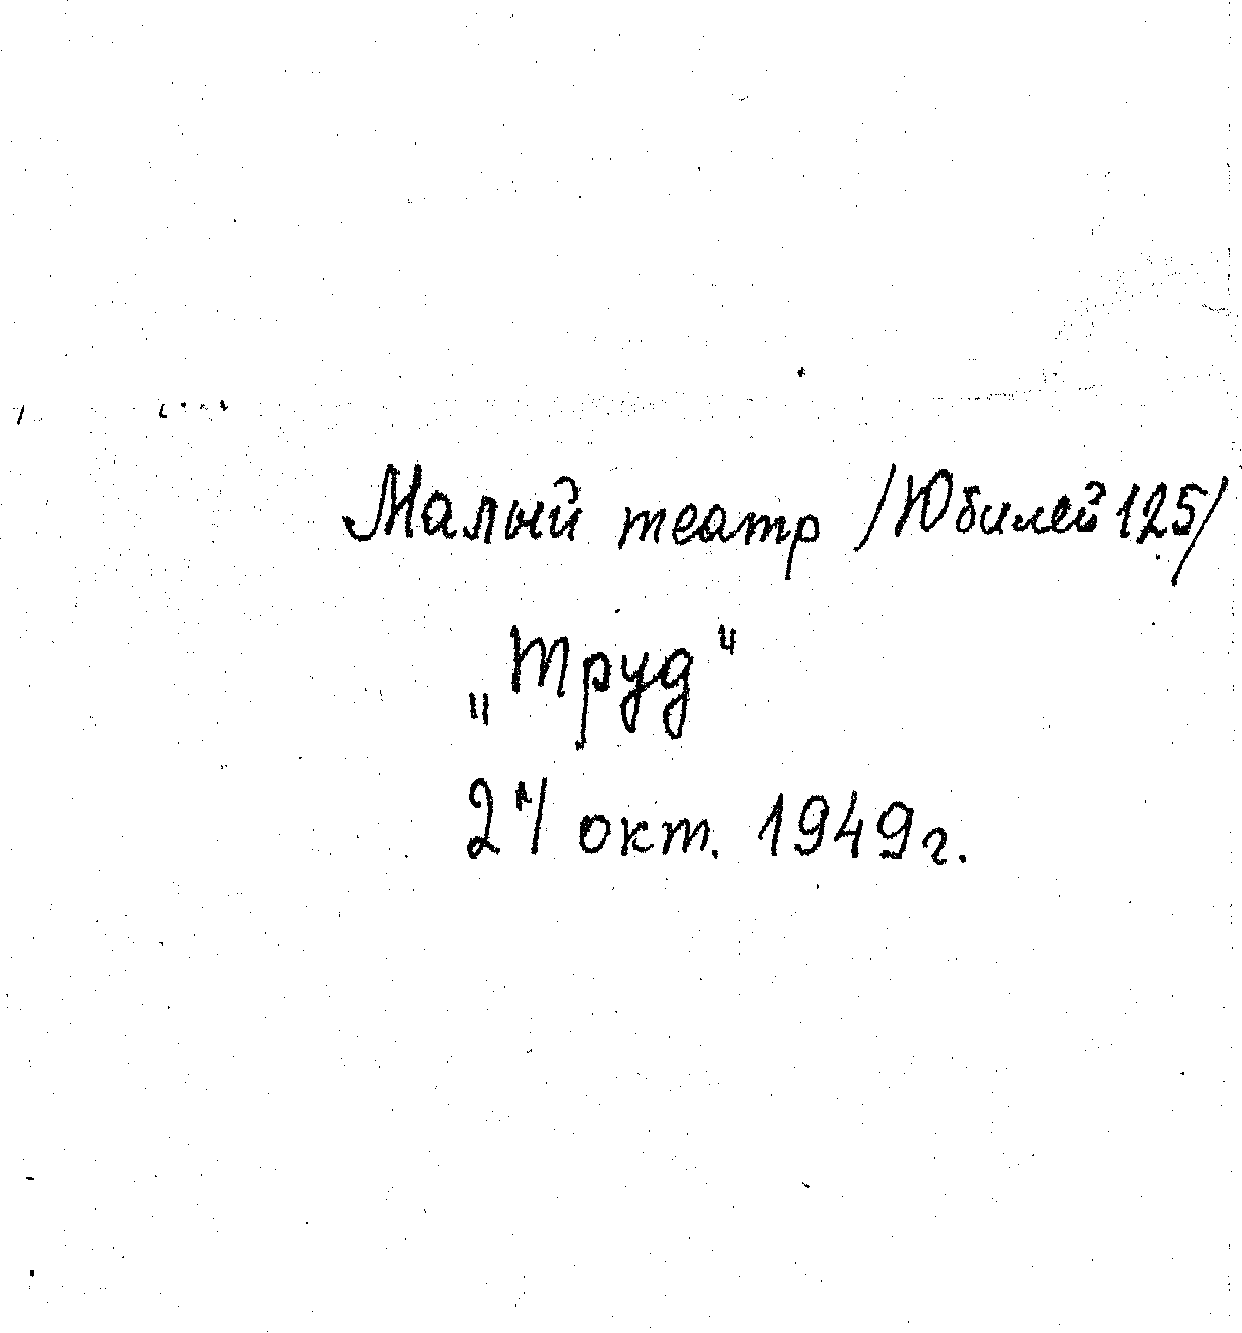 Малый театр /Юбилей 125/
„Труд"
27 окт. 1949 г.